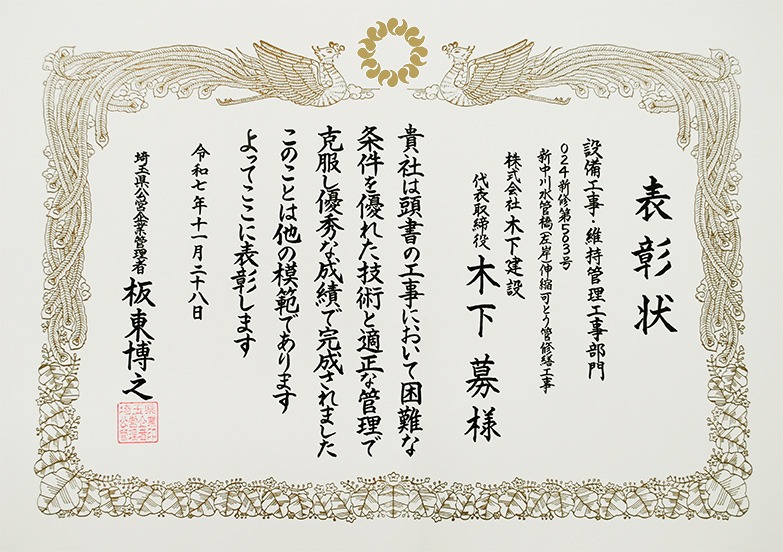 表彰状
設備工事・維持管理工事部門
０２４新修第５０３号
新中川水管橋(左岸)伸縮可とう管修繕工事
株式会社 木下建設
代表取締役 木下 募 様
貴社は頭書の工事において困難な
条件を優れた技術と適正な管理で
克服し優秀な成績で完成されました
このことは他の模範であります
よってここに表彰します
令和七年十一月二十八日
埼玉県公営企業管理者 板東博之